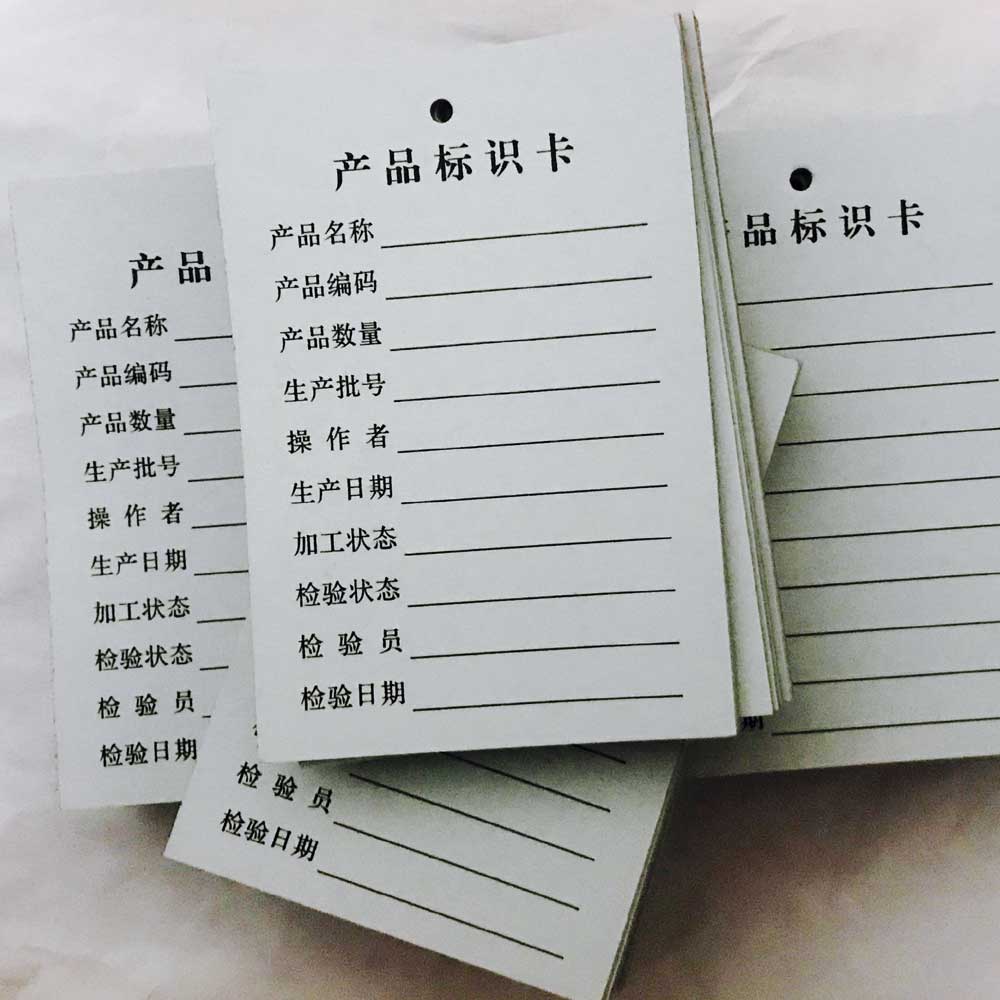 产品标识卡
产品名称
产品编码
产品数量
生产批号
操作者
生产日期
加工状态
检验状态
检验员
检验日期
产品
产品名称
产品编码
产品数量
生产批号
操作者
生产日期
加工状态
检验状态
检验员
检验日期
品标识卡
期
检验员
检验日期